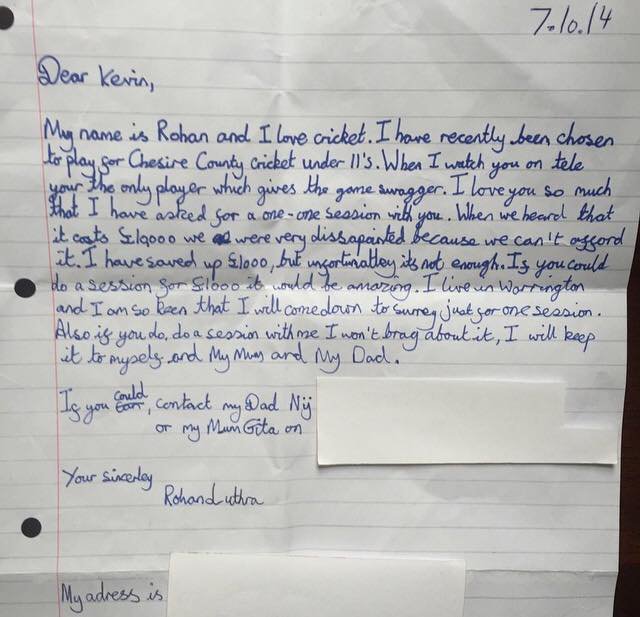 7.10.14
Dear Kevin,
My name is Rohan and I love cricket. I have recently been chosen
to play for Chesire County cricket under 11's. When I watch you on tele
your the only player which gives the game swagger. I love you so much
that I have asked for a one-one session with you. When we heard that
it costs we were very dissapainted because we can't afford
it. I have saved up £1000, but unfortinatley its not enough. If you could
do a session for £1000 it would be amazing. I live in Warrington
and I am so keen that I will come down to Surrey just for one session.
Also if you do, do a session with me I won't brag about it, I will keep
it to myself and My Mum and My Dad.
If you could, contact my Dad Nij
or my Mum Gita on
Your sincerley
Rohan Luthra
My adress is